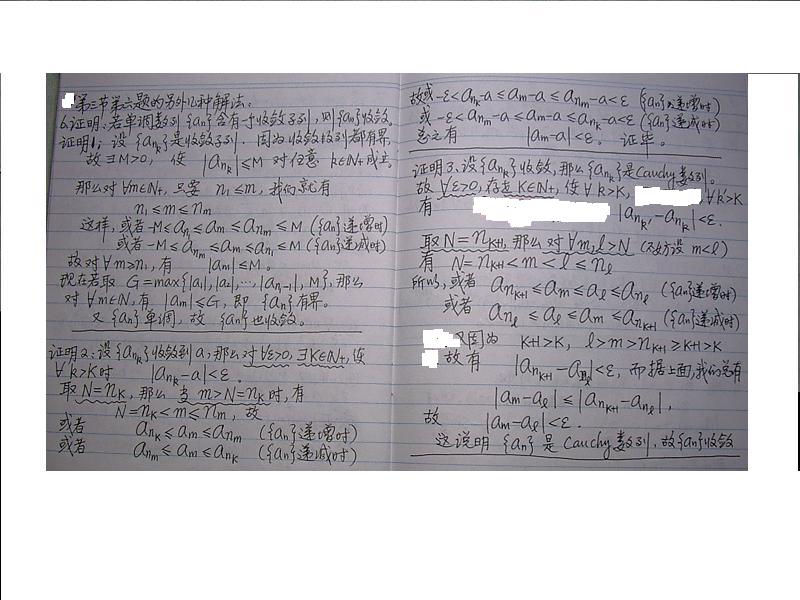 第三节第六题的另外几种解法:
6.证明:若单调数列{an}含有一个收敛子列,则{an}收敛.
证明1:设{ank}是收敛子列.因为收敛数列都有界,
故∃M>0,使 |ank|≤M 对任意 k∈N+成立.
那么对∀m∈N+,只要 n1≤m,我们就有
n1≤m≤nm
这样,或者-M≤an1≤am≤anm≤M ({an}递增时)
或者-M≤anm≤am≤an1≤M ({an}递减时)
故对∀m≥n1,有 |am|≤M.
现在若取 G=max{|a1|,|a2|,…,|an1-1|,M},那么
对∀m∈N+有 |am|≤G,即 {an}有界.
又{an}单调,故 {an}也收敛.
证明2:设{ank}收敛到a,那么对∀ε>0,∃K∈N+,使
∀k>K时 |ank-a|<ε.
取N=nK,那么当m>N=nK时,有
N=nK<m≤nm,故
或者 anK≤am≤anm ({an}递增时)
或者 anm≤am≤anK ({an}递减时)
故或-ε<anK-a≤am-a≤anm-a<ε ({an}递增时)
或-ε<anm-a≤am-a≤anK-a<ε ({an}递减时)
总之有 |am-a|<ε. 证毕.
证明3:设{ank}收敛,那么{ank}是Cauchy数列.
故∀ε>0,存在K∈N+,使∀k>K, ∀k'>K
有 |ank'-ank|<ε.
取N=nK+1,那么对∀m,l>N (不妨设m<l)
有 N=nK+1<m<l≤nl
所以,或者 anK+1≤am≤al≤anl ({an}递增时)
或者 anl≤al≤am≤anK+1 ({an}递减时)
又因为 K+1>K, l>m>nK+1≥K+1>K
故有 |anK+1-anl|<ε,而据上面,我们总有
|am-al|≤|anK+1-anl|,
故 |am-al|<ε.
这说明{an}是Cauchy数列,故{an}收敛